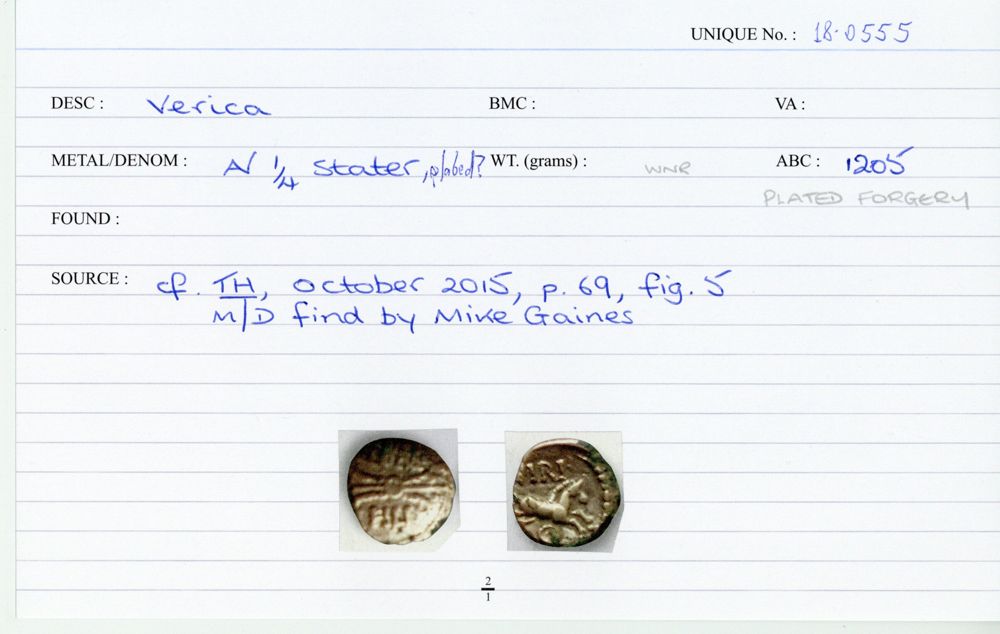 UNIQUE No. : 18-0555
DESC : Verica BMC : VA :
METAL/DENOM : A/ 1/4 stater, plated? WT. (grams) : WNR ABC : 1205
PLATED FORGERY
FOUND :
SOURCE : cf. TH, october 2015, p. 69, fig. 5
M/D find by Mike Gaines
VIRI
2
1